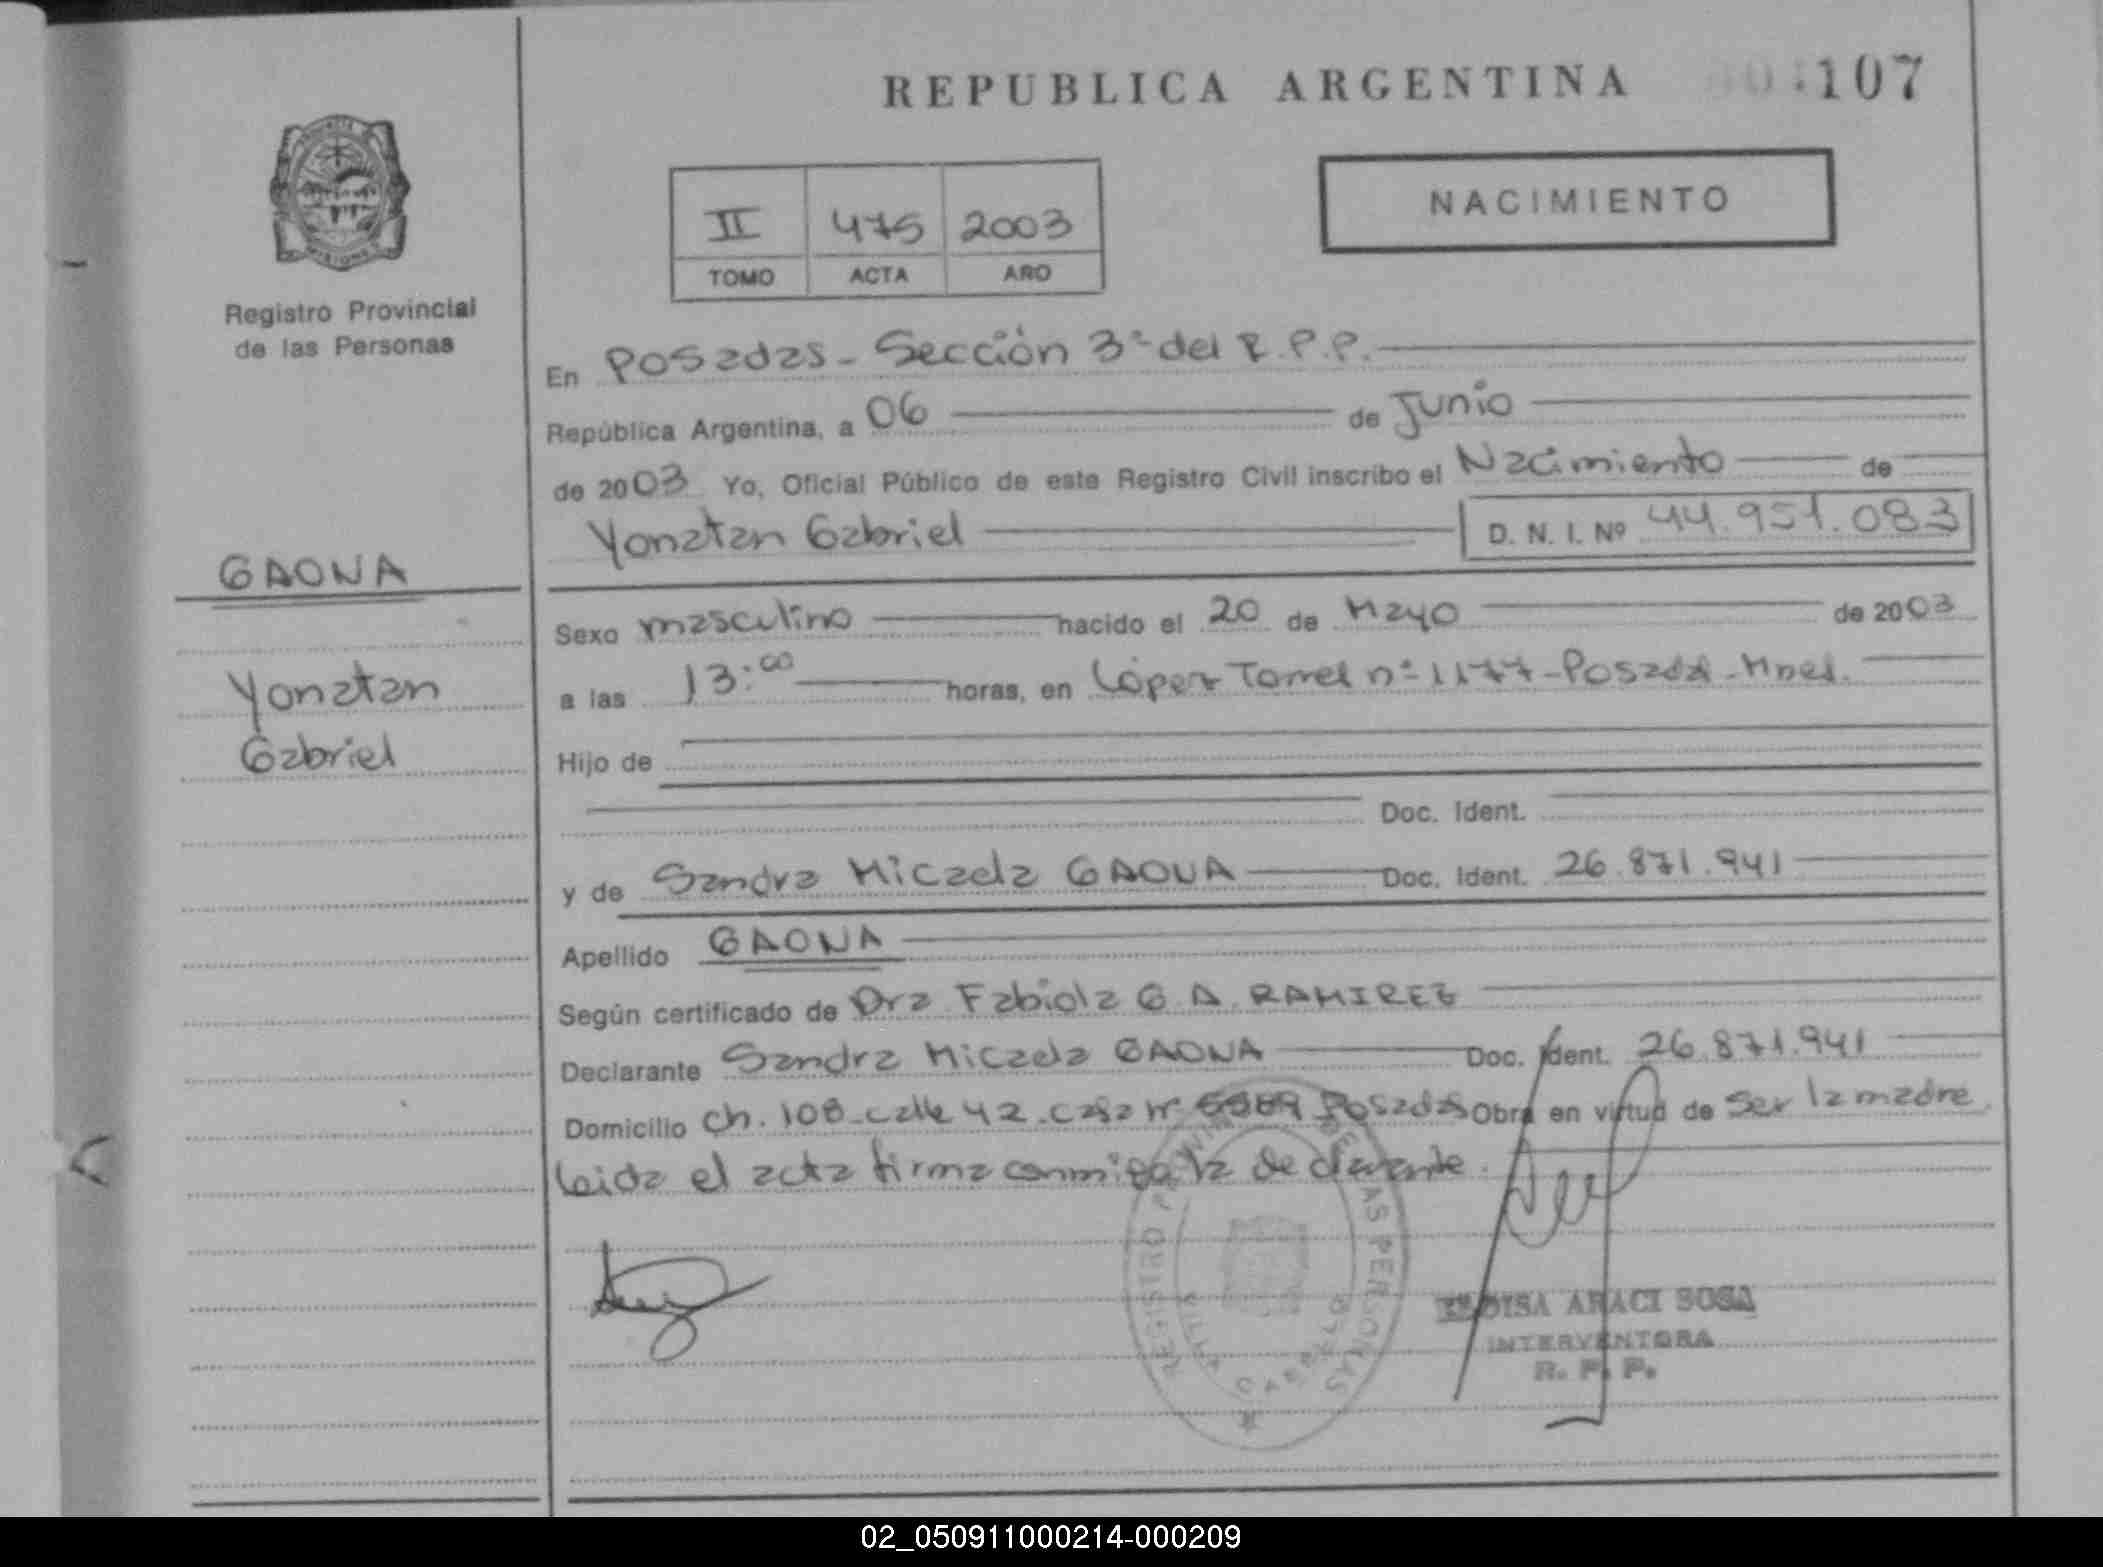 REPUBLICA ARGENTINA
107
NACIMIENTO
II 475 2003
TOMO ACTA AÑO
Registro Provincial
de las Personas
En Posadas - Sección 3ª del R.P.P.
República Argentina, a 06 de Junio
de 2003 Yo, Oficial Público de este Registro Civil inscribo el Nacimiento de
Yonatan Gabriel D. N. I. Nº 44.951.083
GAONA
Yonatan
Gabriel
Sexo masculino nacido el 20 de Mayo de 2003
a las 13:00 horas, en López Torres nº 1177 - Posadas - Mnes.
Hijo de
Doc. Ident.
y de Sandra Micaela GAONA Doc. Ident. 26.871.941
Apellido GAONA
Según certificado de Dra Fabiola G. A. RAMIREZ
Declarante Sandra Micaela GAONA Doc. Ident. 26.871.941
Domicilio Ch. 108 - calle 42 - casa nº Posadas Obra en virtud de ser la madre.
Leida el acta firma conmigo la declarante.
REGISTRO PROVINCIAL DE LAS PERSONAS
VILLA CABELLO
ELOISA ARACI SOSA
INTERVENTORA
R. P. P.
02_050911000214-000209